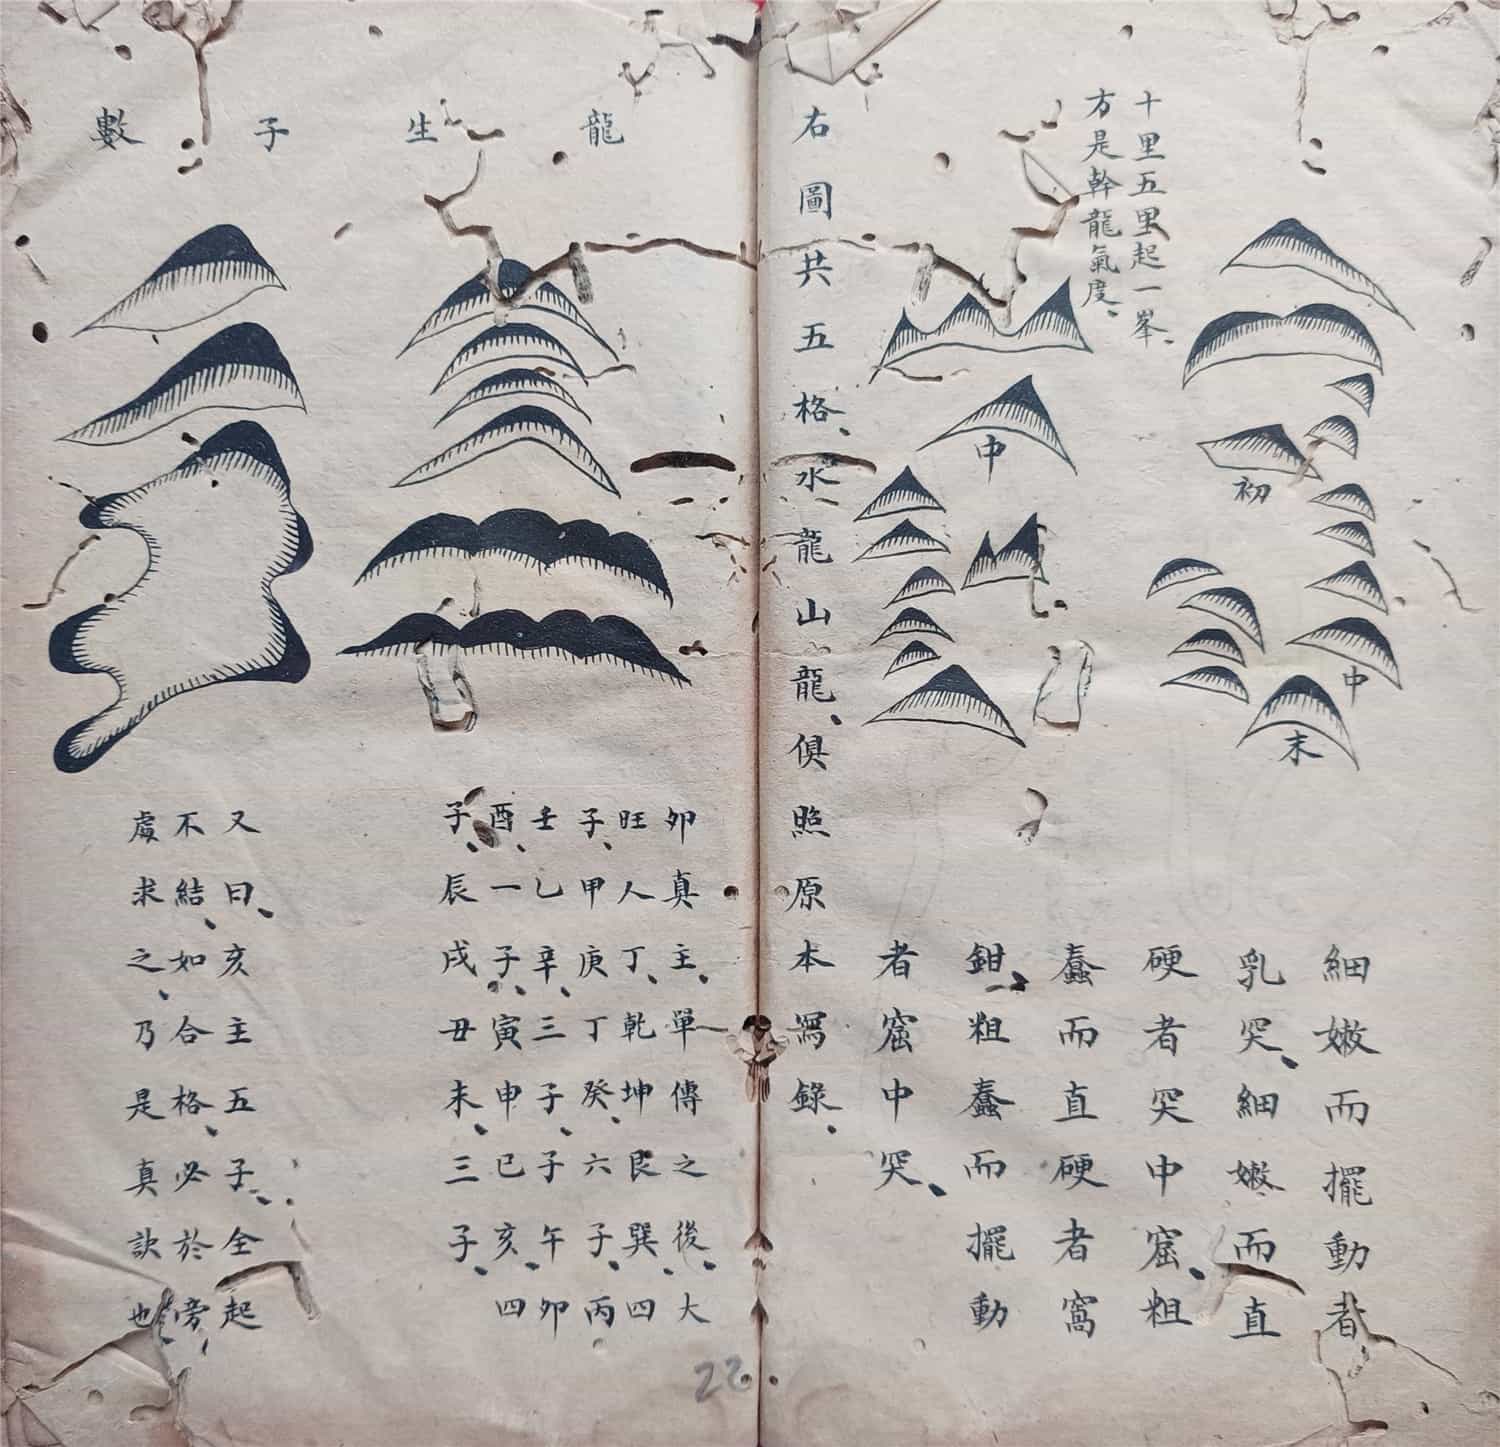 十里五里起一峯、
方是幹龍氣度、
初
中
末
中
細嫩而擺動者
乳突、細嫩而直
硬者突中窟、粗
蠢而直硬者窩
鉗、粗蠢而擺動
者窟中突、
右圖共五格、水龍山龍、俱照原本寫錄、
龍生子數
卯真主、單傳之後、大
旺人丁、乾坤艮巽、四
子、甲庚丁癸、六子、丙
壬乙辛、三子、子午卯
酉、一子、寅申巳亥、四
子、辰戌丑未、三子、
又曰、亥主五子、全起
不結、如合格、必於旁
處求之、乃是真訣也
22